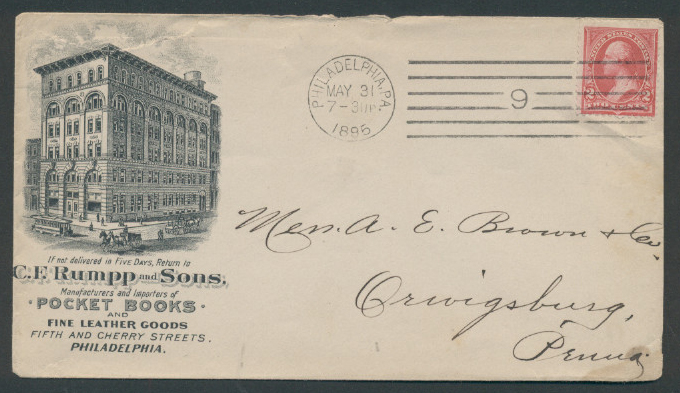 If not delivered in FIVE DAYS, Return to
C. F. Rumpp and Sons.
Manufacturers and Importers of
·POCKET BOOKS·
AND
FINE LEATHER GOODS
FIFTH AND CHERRY STREETS,
PHILADELPHIA.
PHILADELPHIA, PA.
MAY 31
1895
9
UNITED STATES
2 2
TWO CENTS
Mess. A. E. Brown & Co.
Orwigsburg,
Penna